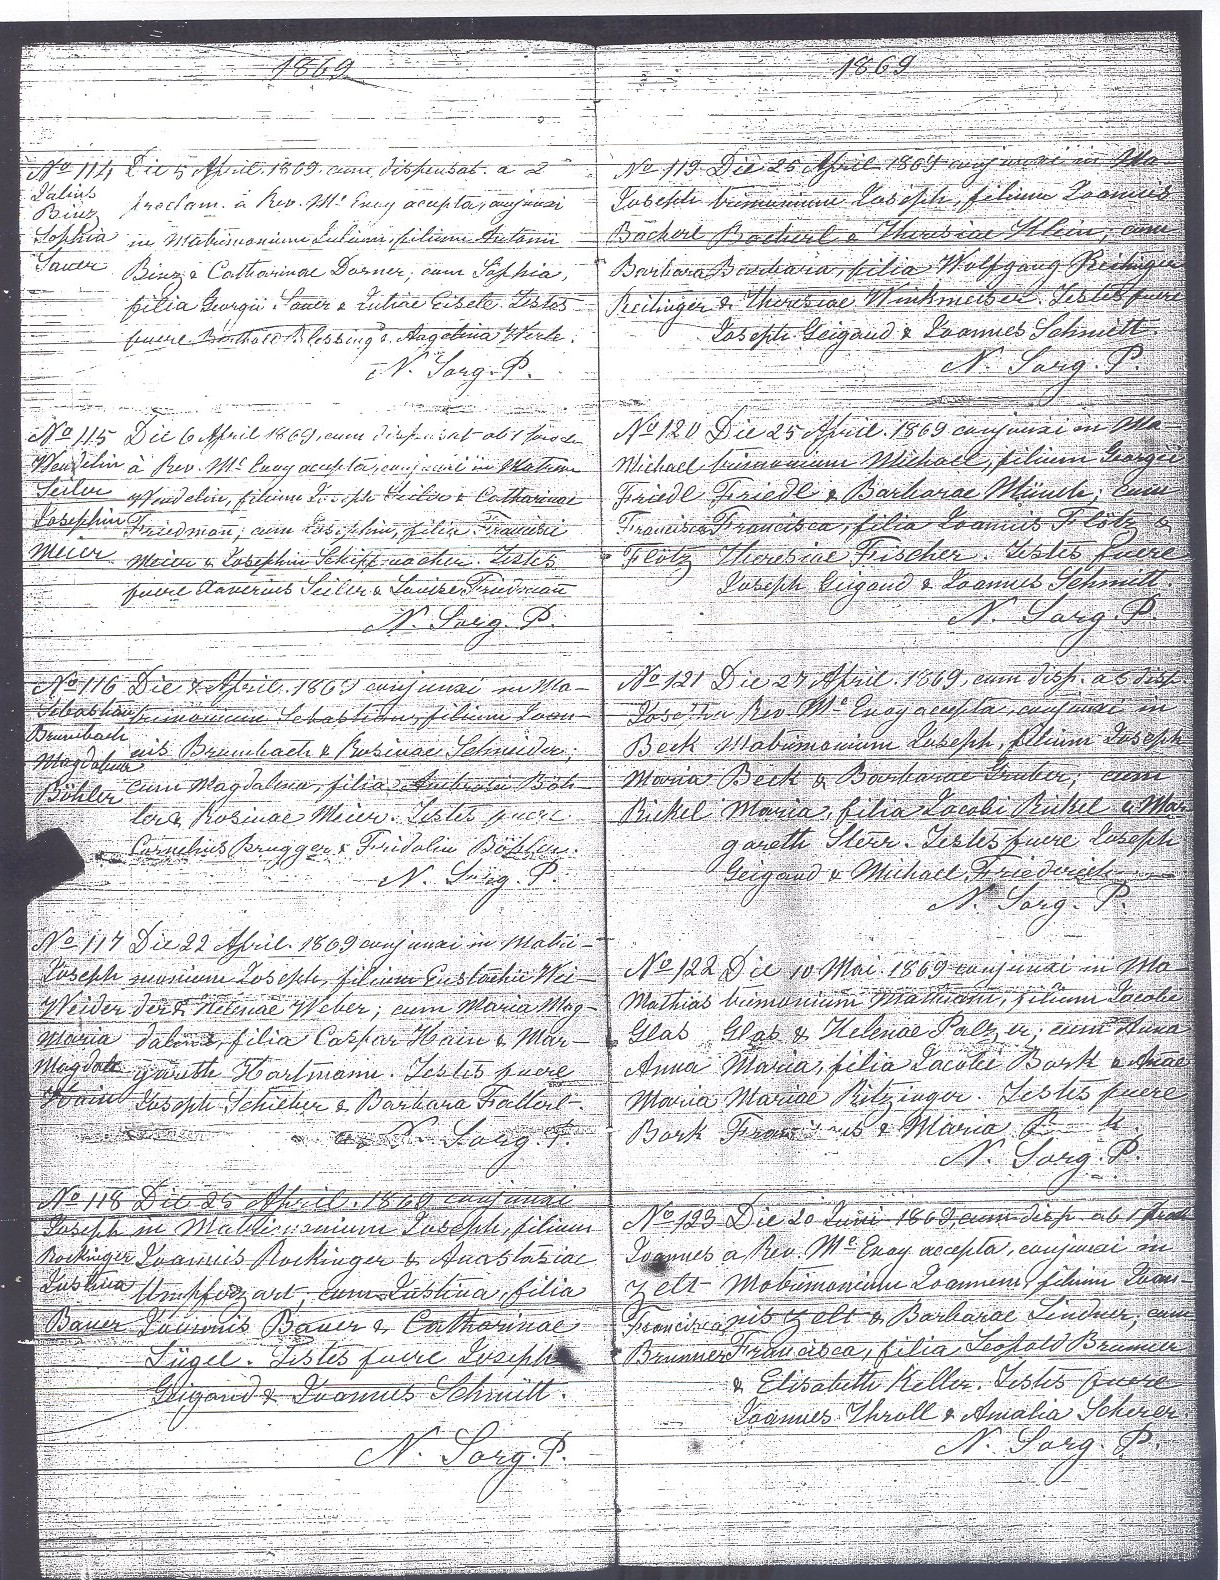 1869
No 114 Die 5 April. 1869 cum dispensat. a 2
Julius
Binz
proclam. à Rev. Mc Enoy acepta, conjunxi
Sophia
in Matrimonium Julium, filium Antonii
Sauer
Binz & Catharinae Dorner; cum Sophia,
filia Georgii Sauer & Juliae Eisele. Testes
fuere Berthold Blessing & Angelina Werle.
N. Sorg. P.
No 115 Die 6 April 1869, cum dispensat ab 1
Wendelin à Rev. Mc Enoy acepta, conjunxi in Matrim
Seiler Wendelin, filium Joseph Seiler & Catharinae
Josephin Friedman; cum Josephin, filia Francisci
Meier Meier & Josephin Schiffmacher. Testes
fuere Xaverius Seiler & Louise Friedman
N. Sorg. P.
No 116 Die April. 1869 conjunxi in Ma-
Sebastian trimonium Sebastian, filium Joan-
Brumbach
nis Brumbach & Rosinae Schneider;
Magdalena
cum Magdalena, filia Ambrosii Böh-
Böhler
ler & Rosinae Meier. Testes fuere
Cornelius Brugger & Fridolin Böhler.
N. Sorg. P.
No 117 Die 22 April. 1869 conjunxi in Matri-
Joseph monium Joseph, filium Eustachii Wei-
Weider der & Helenae Weber; cum Maria Mag-
Maria dalena, filia Caspar Hain & Mar-
Magdale gareth Hartmann. Testes fuere
Hain Joseph Schieber & Barbara Falterl.
N. Sorg. P.
No 118 Die 25 April. 1869 conjunxi
Joseph in Matrimonium Joseph, filium
Rockinger Joannis Rockinger & Anastasiae
Justina cum Justina, filia
Bauer Joannis Bauer & Catharinae
Lügel. Testes fuere Joseph
Geigand & Joannes Schmitt.
N. Sorg. P.
1869
No 119 Die 25 April 1869 conjunxi in Ma-
Joseph trimonium Joseph, filium Joannis
Bacherl Bacherl & Theresiae Klein; cum
Barbara Barbara, filia Wolfgang Reitinger
Reitinger & Theresiae Winkmeiser. Testes fuere
Joseph Geigand & Joannes Schmitt.
N. Sorg. P.
No 120 Die 25 April. 1869 conjunxi in Ma-
Michael trimonium Michael, filium Georgii
Friedl Friedl & Barbarae Münch; cum
Francisca Francisca, filia Joannis Flötz &
Flötz Theresiae Fischer. Testes fuere
Joseph Geigand & Joannes Schmitt.
N. Sorg. P.
No 121 Die 27 April. 1869, cum disp. a 3 disp
Joseph a Rev. Mc Enoy accepta, conjunxi in
Beck Matrimonium Joseph, filium Joseph
Maria Beck & Barbarae Gruber; cum
Rickel Maria, filia Jacobi Rickel & Mar
gareth Sterr. Testes fuere Joseph
Geigand & Michael Friederich
N. Sorg. P.
No 122 Die 10 Mai. 1869 conjunxi in Ma-
Mathias trimonium Mathiam, filium Jacobi
Glas Glas & Helenae Palzer; cum Anna
Anna Maria, filia Jacobi Bork & Annae
Maria Mariae Ritzinger. Testes fuere
Bork & Maria
N. Sorg. P.
No 123 Die 20 Juni 1869, cum disp. ab 1
Joannes a Rev. Mc Enoy accepta, conjunxi in
Zelt Matrimonium Joannem, filium Joan
Francisca nis Zelt & Barbarae Lindner; cum
Brunner Francisca, filia Leopold Brunner
& Elisabeth Keller. Testes fuere
Joannes Throll & Amalia Scherer.
N. Sorg. P.